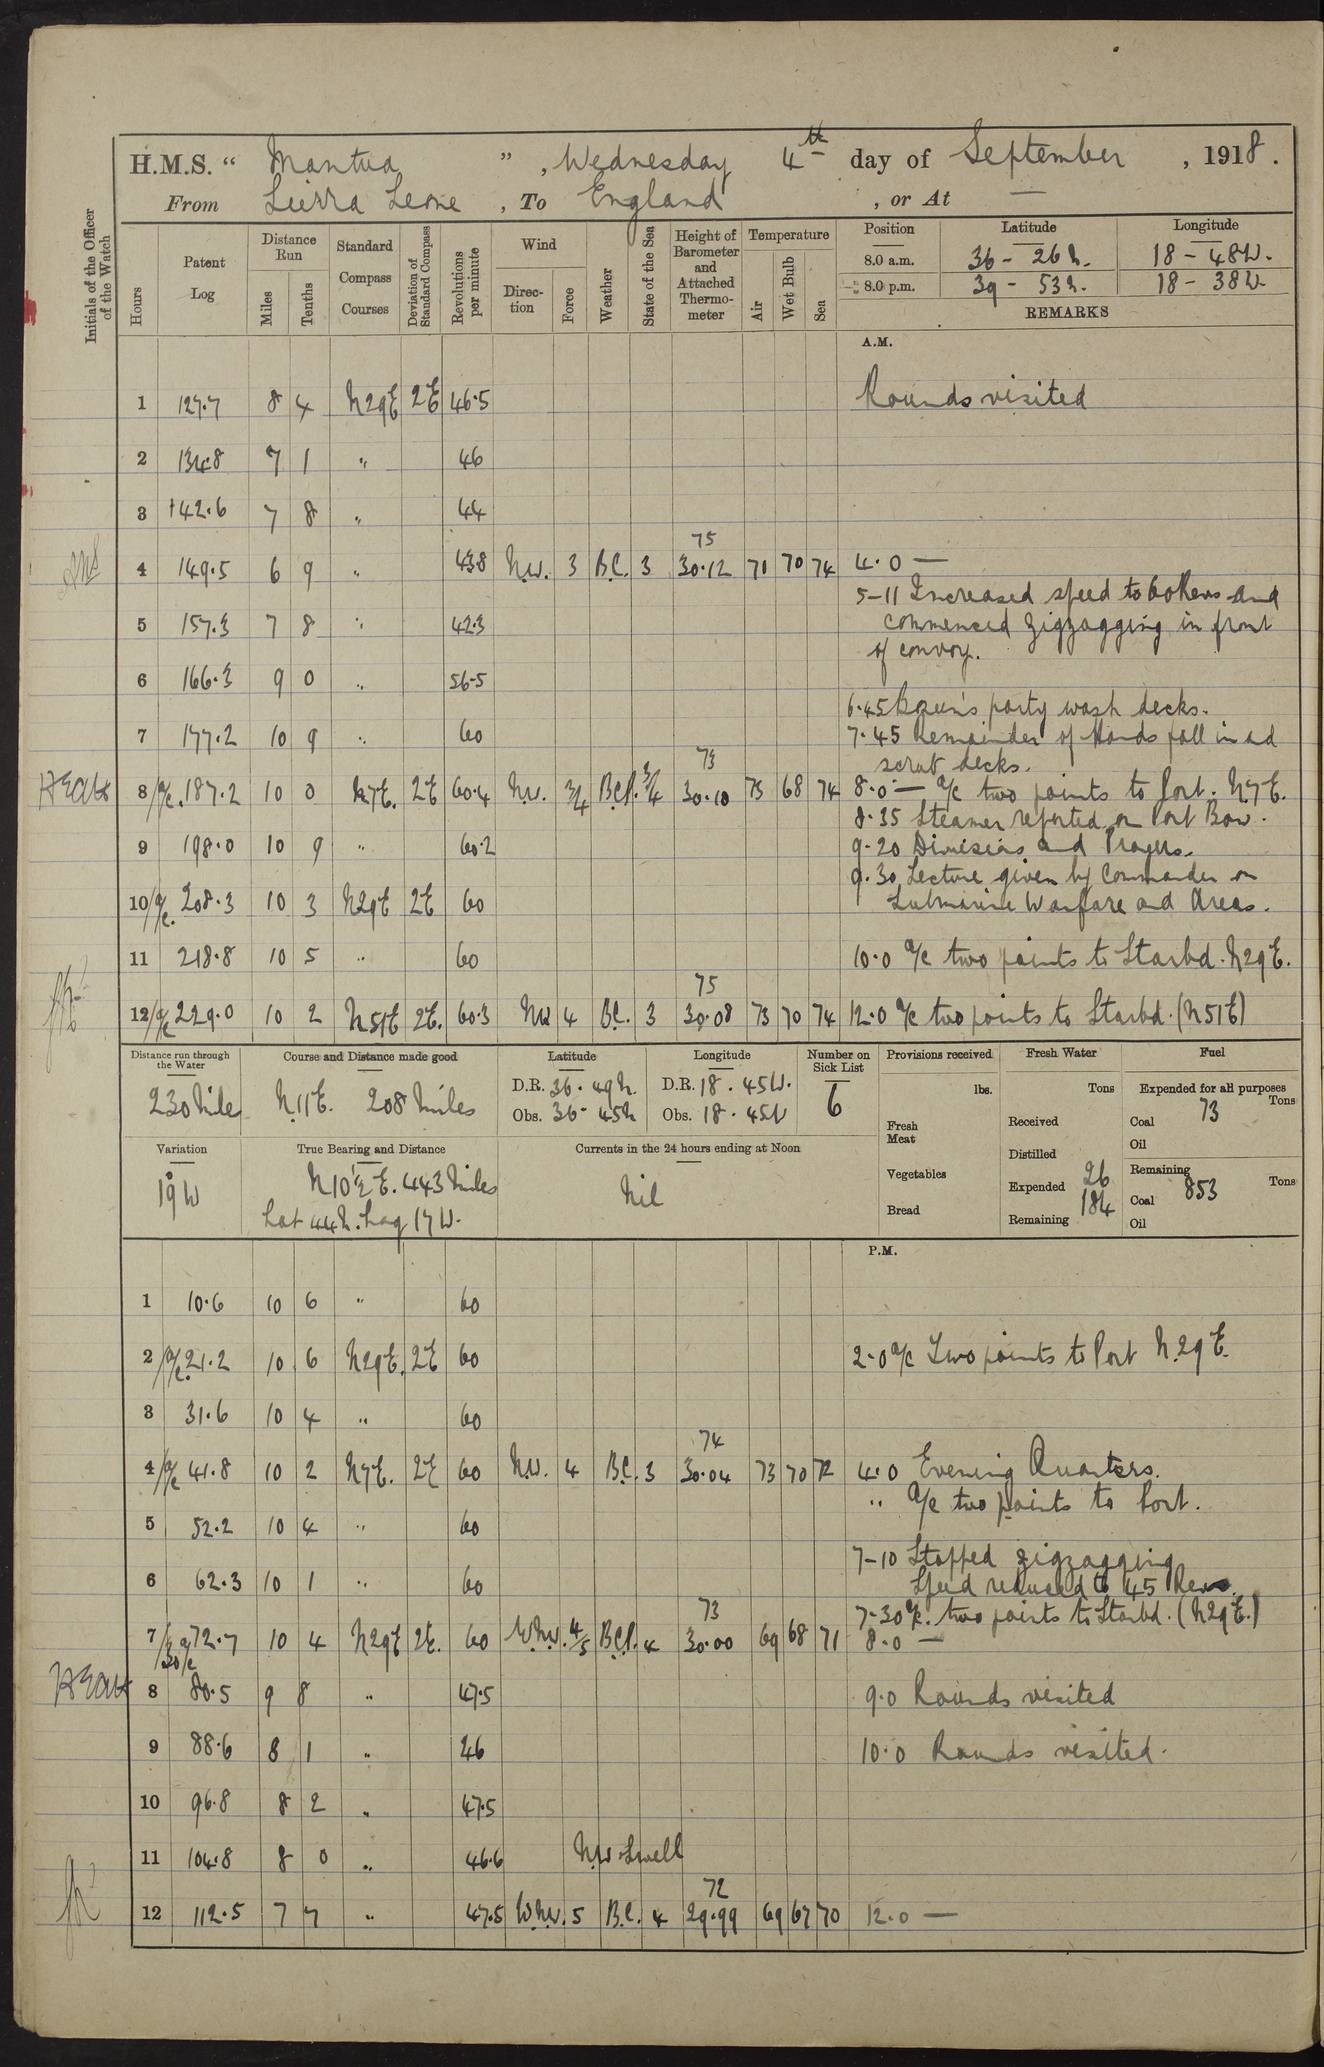 H.M.S. " Mantua " , Wednesday 4th day of September , 1918.
From Sierra Leone , To England , or At —
Initials of the Officer of the Watch
Hours
Patent Log
Distance Run
Miles
Tenths
Standard Compass Courses
Deviation of Standard Compass
Revolutions per minute
Wind
Direction
Force
Weather
State of the Sea
Height of Barometer and Attached Thermometer
Temperature
Air
Wet Bulb
Sea
Position Latitude Longitude
8.0 a.m. 36 - 26 N. 18 - 48 W.
8.0 p.m. 39 - 53 N. 18 - 38 W.
REMARKS
A.M.
1 127.7 8 4 N29E 2E 46.5 Rounds visited
2 134.8 7 1 " 46
3 142.6 7 8 " 44
75
4 149.5 6 9 " 43.8 N.W. 3 B.C. 3 30.12 71 70 74 4.0 —
5-11 Increased speed to 60 Revs and
5 157.3 7 8 " 42.3 commenced zigzagging in front
of convoy.
6 166.3 9 0 " 56.5
6.45 Bosun's party wash decks.
7 177.2 10 9 " 60 7.45 Remainder of Hands fall in and
73 scrub decks.
8 /A/c. 187.2 10 0 N7E. 2E 60.4 N.W. 3/4 B.C.P. 3/4 30.10 73 68 74 8.0 — A/c two points to Port. N7E.
8.35 Steamer reported on Port Bow.
9 198.0 10 9 " 60.2 9.20 Divisions and Prayers.
9.30 Lecture given by Commander on
10 /A/c. 208.3 10 3 N29E 2E 60 Submarine Warfare and Areas.
11 218.8 10 5 " 60 10.0 A/c two points to Starbd. N29E.
75
12 /A/c 229.0 10 2 N51E 2E. 60.3 NW 4 B.C. 3 30.08 73 70 74 12.0 A/c two points to Starbd. (N51E)
Distance run through the Water
230 Miles
Course and Distance made good
N11E. 208 Miles
Latitude
D.R. 36. 49 N.
Obs. 36- 45 N
Longitude
D.R. 18. 45 W.
Obs. 18. 45 W
Number on Sick List
6
Provisions received
lbs.
Fresh Meat
Vegetables
Bread
Fresh Water
Tons
Received
Distilled
Expended 26
Remaining 184
Fuel
Expended for all purposes
Tons
Coal 73
Oil
Remaining
Tons
Coal 853
Oil
Variation
19° W
True Bearing and Distance
N10½E. 443 Miles
Lat 44 N. Long 17 W.
Currents in the 24 hours ending at Noon
Nil
P.M.
1 10.6 10 6 " 60
2 /A/c. 21.2 10 6 N29E. 2E 60 2.0 A/c Two points to Port N.29E.
3 31.6 10 4 " 60
74
4 /A/c 41.8 10 2 N7E. 2E 60 N.W. 4 B.C. 3 30.04 73 70 72 4.0 Evening Quarters.
" A/c two points to Port.
5 52.2 10 4 " 60
7-10 Stopped zigzagging
6 62.3 10 1 " 60 Speed reduced to 45 Revs.
73 7-30 A/c. two points to Starbd. (N29E.)
7 /7.30 A/c 72.7 10 4 N29E 2E. 60 W.N.W. 4/5 B.C.P. 4 30.00 69 68 71 8.0 —
8 80.5 9 8 " 47.5 9.0 Rounds visited
9 88.6 8 1 " 46 10.0 Rounds visited.
10 96.8 8 2 " 47.5
11 104.8 8 0 " 46.6 NW Swell
72
12 112.5 7 7 " 47.5 W.N.W. 5 B.C. 4 29.99 69 67 70 12.0 —